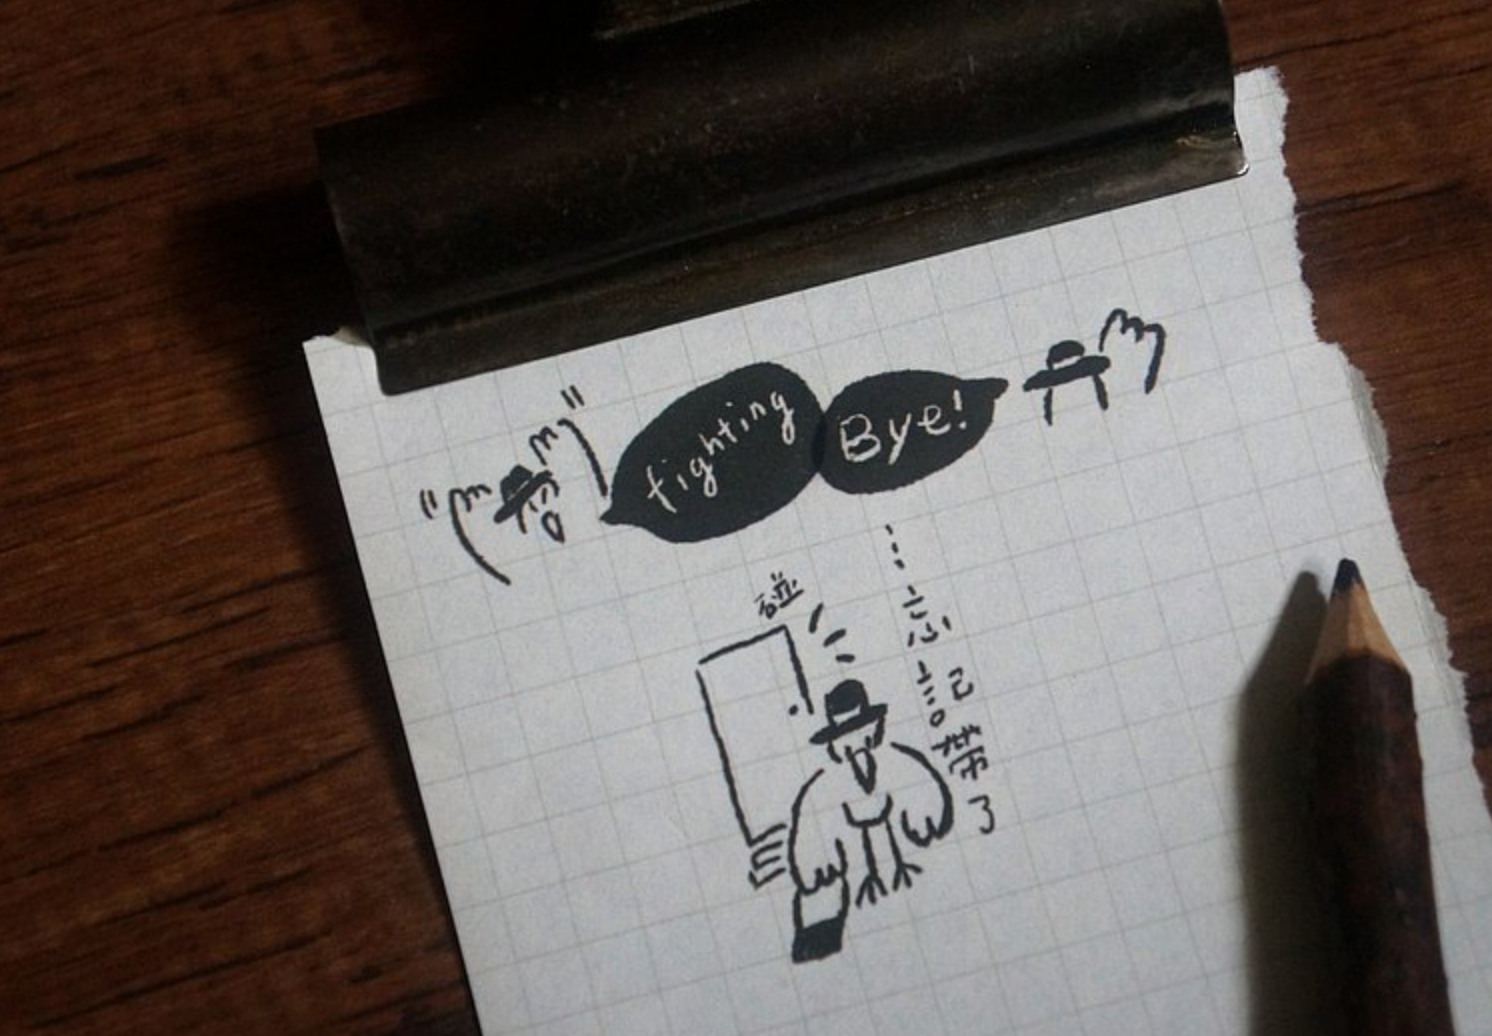 fighting
Bye!
碰
…忘記帶了